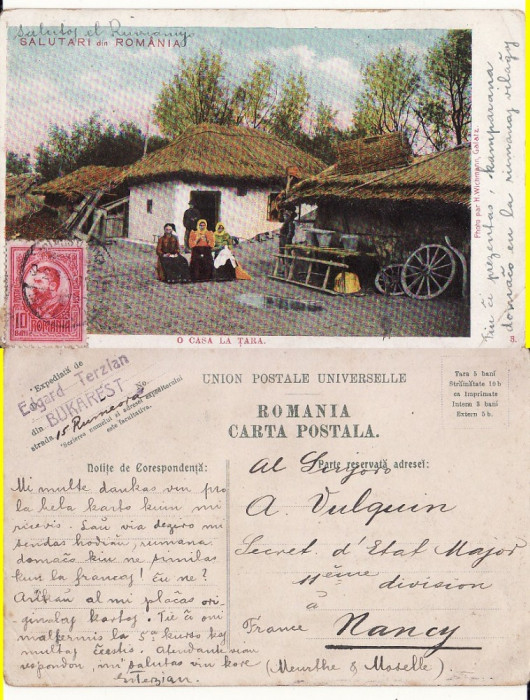 Salutoj el Rumanuj
SALUTARI din ROMÂNIA
Tie ĉi prezentas, kamparana
domaĉo en la rumanaj vilaĝoj
Photo par H. Wichmann, Galatz.
10
BANI
ROMANIA
O CASA LA ȚARA.
3.
Expediată de
Edgard Terzian
din BUKAREST
strada 15 Rumeora No.
"Scrierea numelui si adresei expeditorului
este facultativa."
UNION POSTALE UNIVERSELLE
ROMANIA
CARTA POSTALA.
Tara 5 bani
Străinătate 10 b
ca imprimate
Intern 3 bani
Extern 5 b.
Notițe de Corespondență:
Mi multe dankas vin pro
la bela karto kiun mi
ricevis. Laŭ via deziro mi
sendas hodiaŭ, rumana
domaĉo kiu ne similas
kun la francoj! ĉu ne?
Ankaŭ al mi plaĉas ori-
ginalaj kartoj. Tie ĉi oni
malfermis la 5an kurso kaj
multaj ĉeestis. Atendante vian
respondon, mi salutas vin kore
ETerzian.
Parte reservată adresei:
Al Sinjoro
A. Vulquin
Secret. d'Etat Major
11ème division
à
France Nancy
(Meurthe & Moselle)